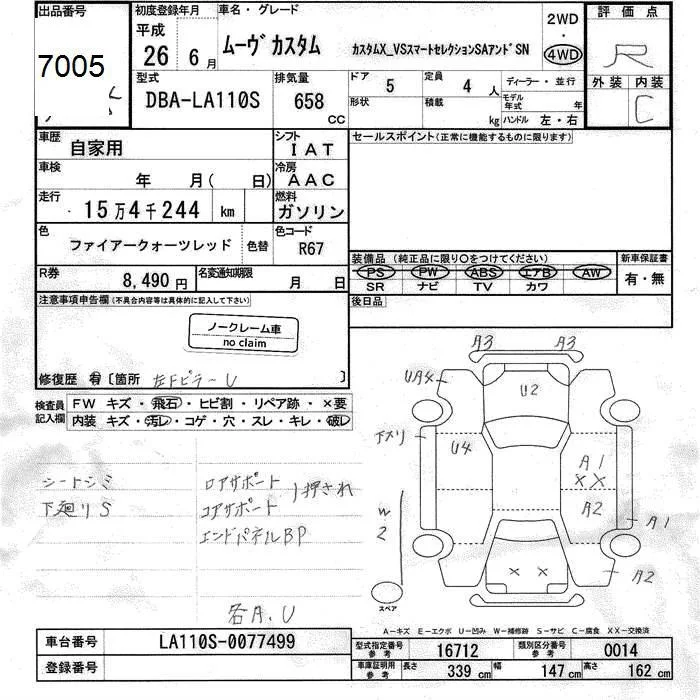 出品番号
7005
初度登録年月
平成
26 6月
車名・グレード
ムーヴ カスタム カスタムX_VSスマートセレクションSAアンドSN
2WD
・
4WD
評価点
R
外装 内装
C
型式
DBA-LA110S
排気量
658
CC
ドア
5
定員
4 人
形状
積載
kg
ディーラー・並行
モデル年式 年
ハンドル 左・右
車歴
自家用
シフト
IAT
車検
年 月( 日)
冷房
AAC
走行
15万4千244 km
燃料
ガソリン
色
ファイアークォーツレッド
色替
色コード
R67
R券
8,490 円
名変通知期限
月 日
セールスポイント(正常に機能するものに限ります)
装備品 (純正品に限り〇をつけてください)
PS PW ABS エアB AW
SR ナビ TV カワ
新車保証書
有・無
後日品
注意事項申告欄(不具合内容等は具体的に記入して下さい)
ノークレーム車
no claim
修復歴 有 〔箇所 左Fピラ-U 〕
検査員記入欄
FW キズ・飛石・ヒビ割・リペア跡・×要
内装 キズ・汚レ・コゲ・穴・スレ・キレ・破レ
シートシミ
下廻りS
ロアサポート
コアサポート
押され
エンドパネルBP
各A.U
A3 A3
UA4
U2
下メリ
U4
A1
XX
A2
W2
A1
× ×
A2
スペア
A-キズ E-エクボ U-凹み W-補修跡 S-サビ C-腐食 XX-交換済
車台番号
LA110S-0077499
登録番号
型式指定番号
参考
16712
類別区分番号
参考
0014
車庫証明用
参考
長さ
339 cm
幅
147 cm
高さ
162 cm